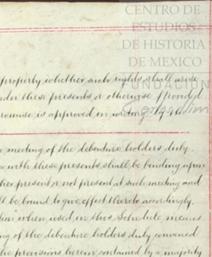 CENTRO DE
ESTUDIOS
DE HISTORIA
DE MEXICO
FUNDACIÓN
property whether such rights shall arise
under these presents or otherwise provided
promise is approved in writing by
meeting of the debenture holders duly
with these presents shall be binding upon
present or not present at such meeting and
ll be bound to give effect thereto accordingly.
when used in this Schedule means
ng of the debenture holders duly convened
the provisions herein contained by a majority